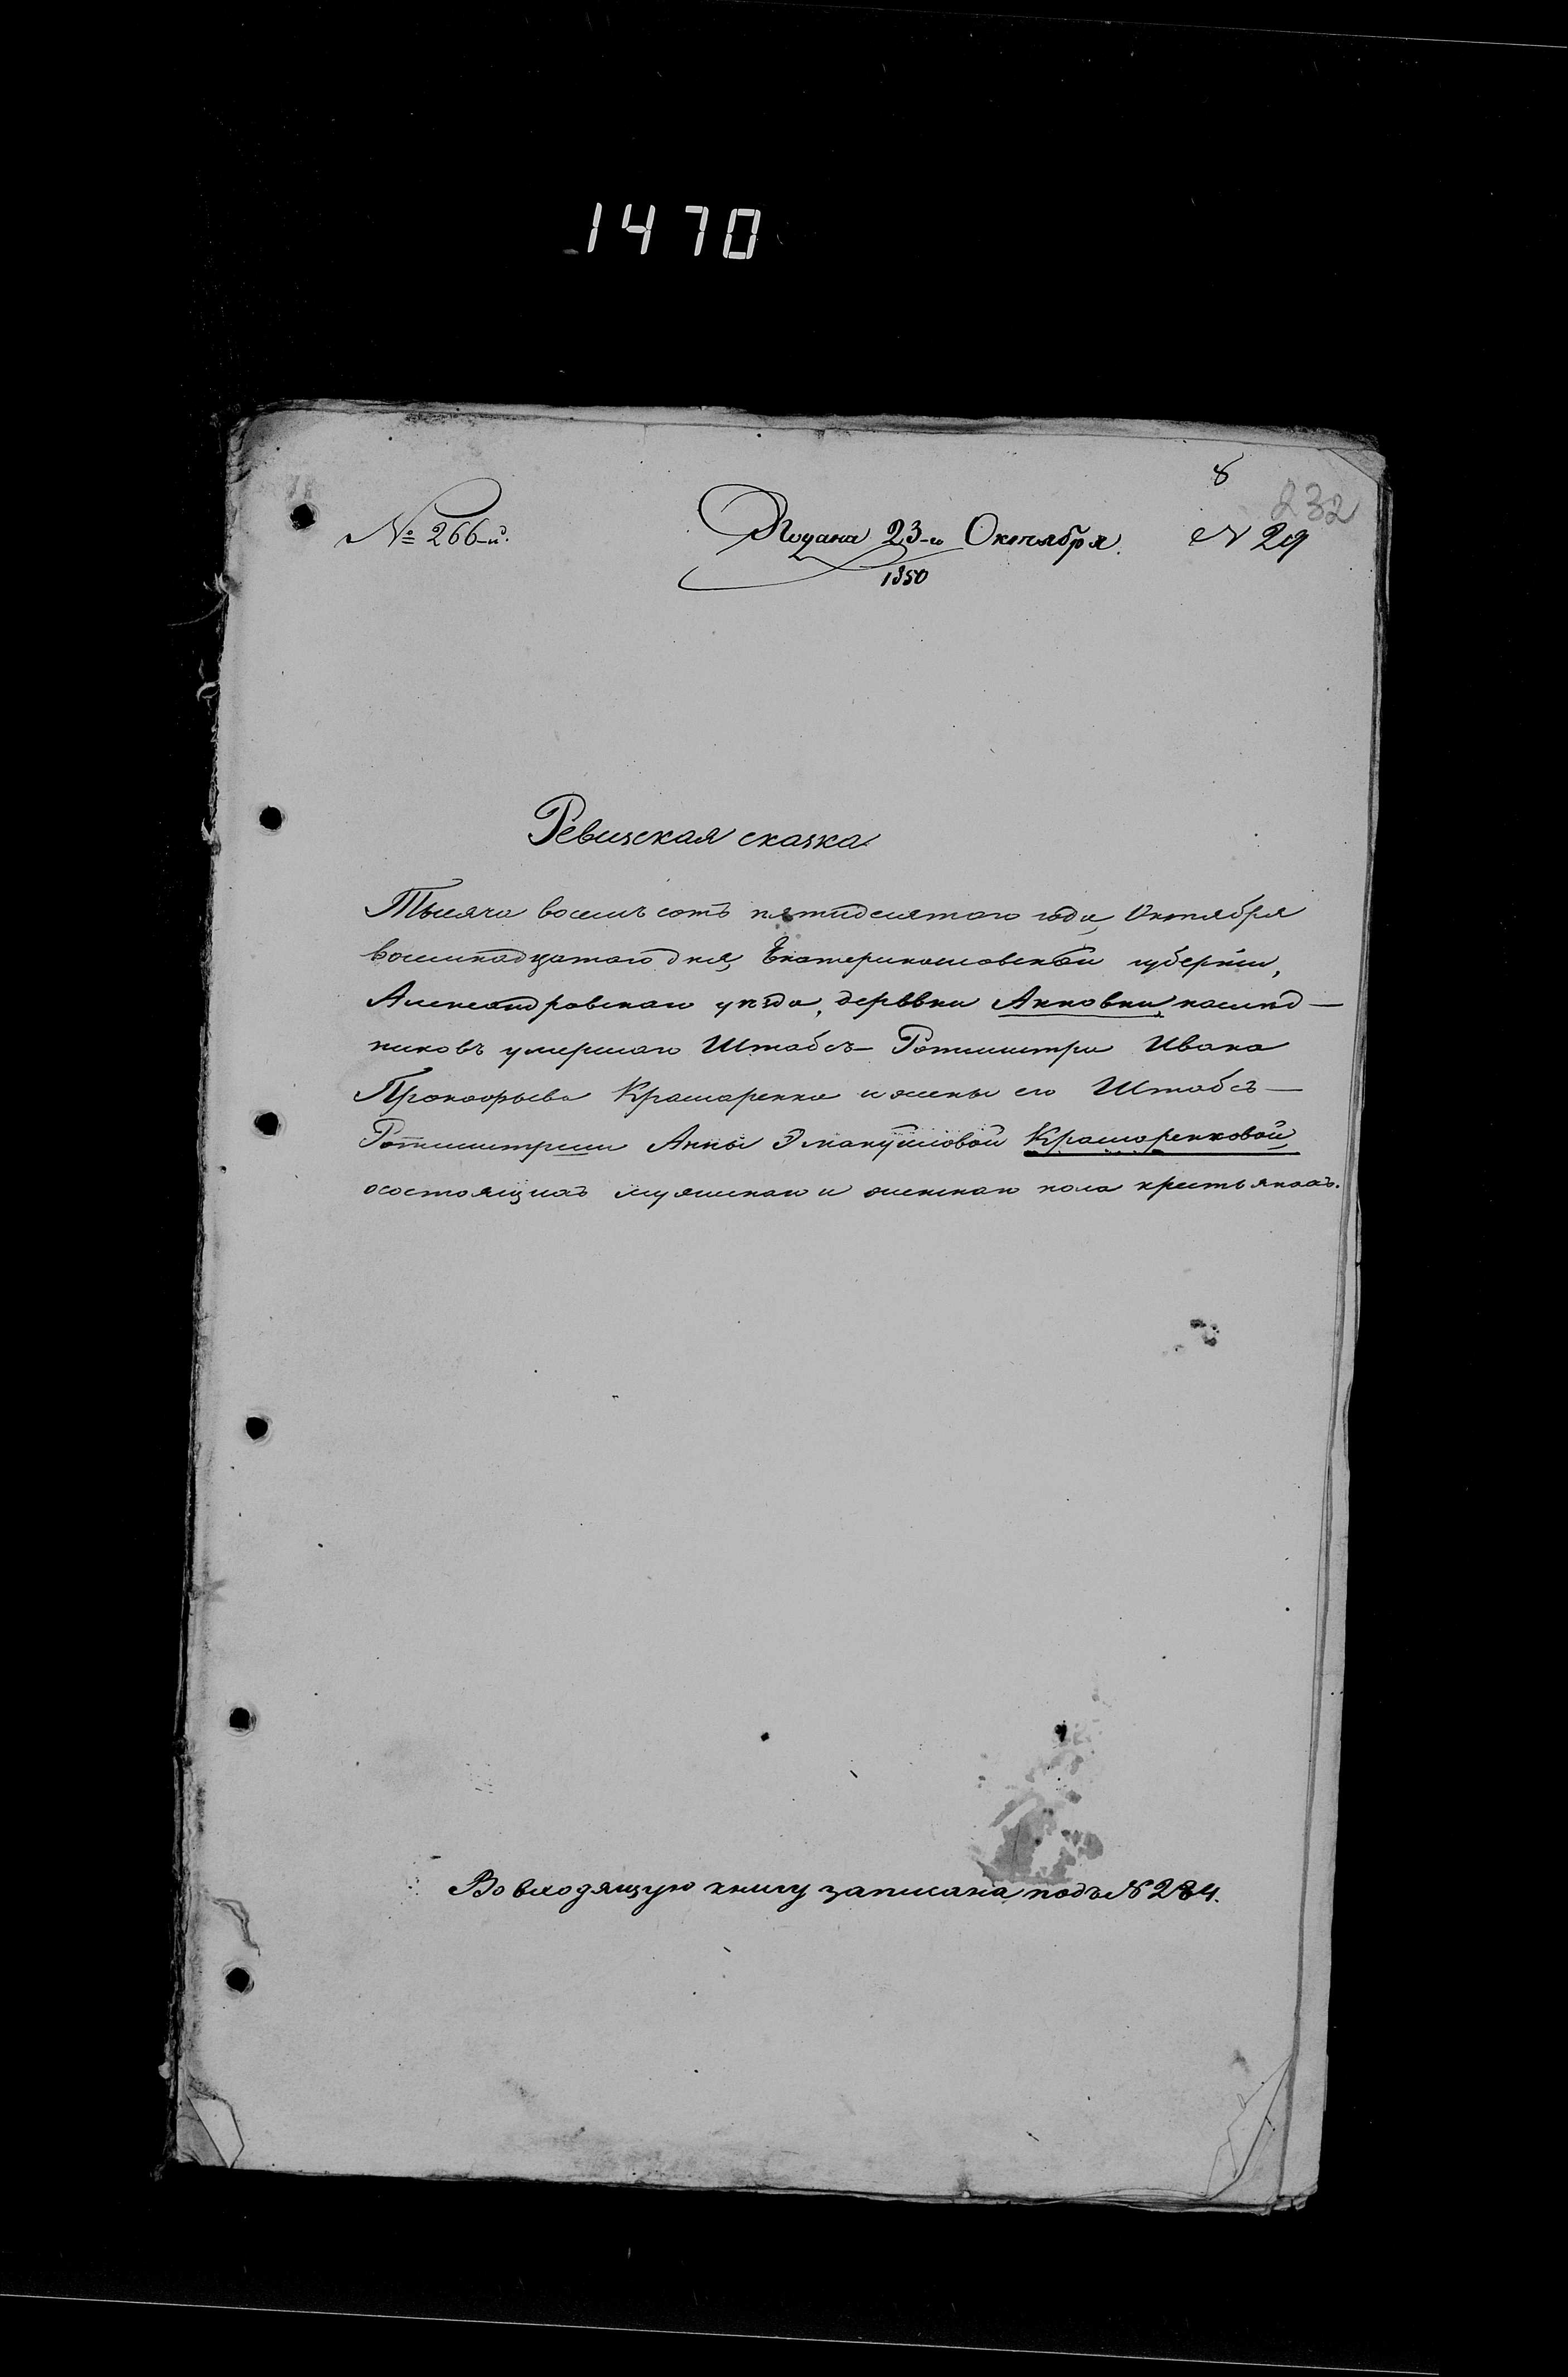 1470
8
232
№ 266-й.
Подана 23-го Октября.
N 29
1850
Ревизская сказка
Тысяча восемь сотъ пятидесятаго года, Октября
восемнадцатаго дня, Екатеринославской губерніи,
Александровскаго уѣзда, деревни Анновки, наслѣд-
никовъ умершаго Штабсъ-Ротмистра Ивана
Прокофьева Крамаренка и жены его Штабсъ-
Ротмистрши Анны Эмануиловой Крамаренковой,
о состоящихъ мужескаго и женскаго пола крестьянахъ.
Во входящую книгу записана подъ N 284.